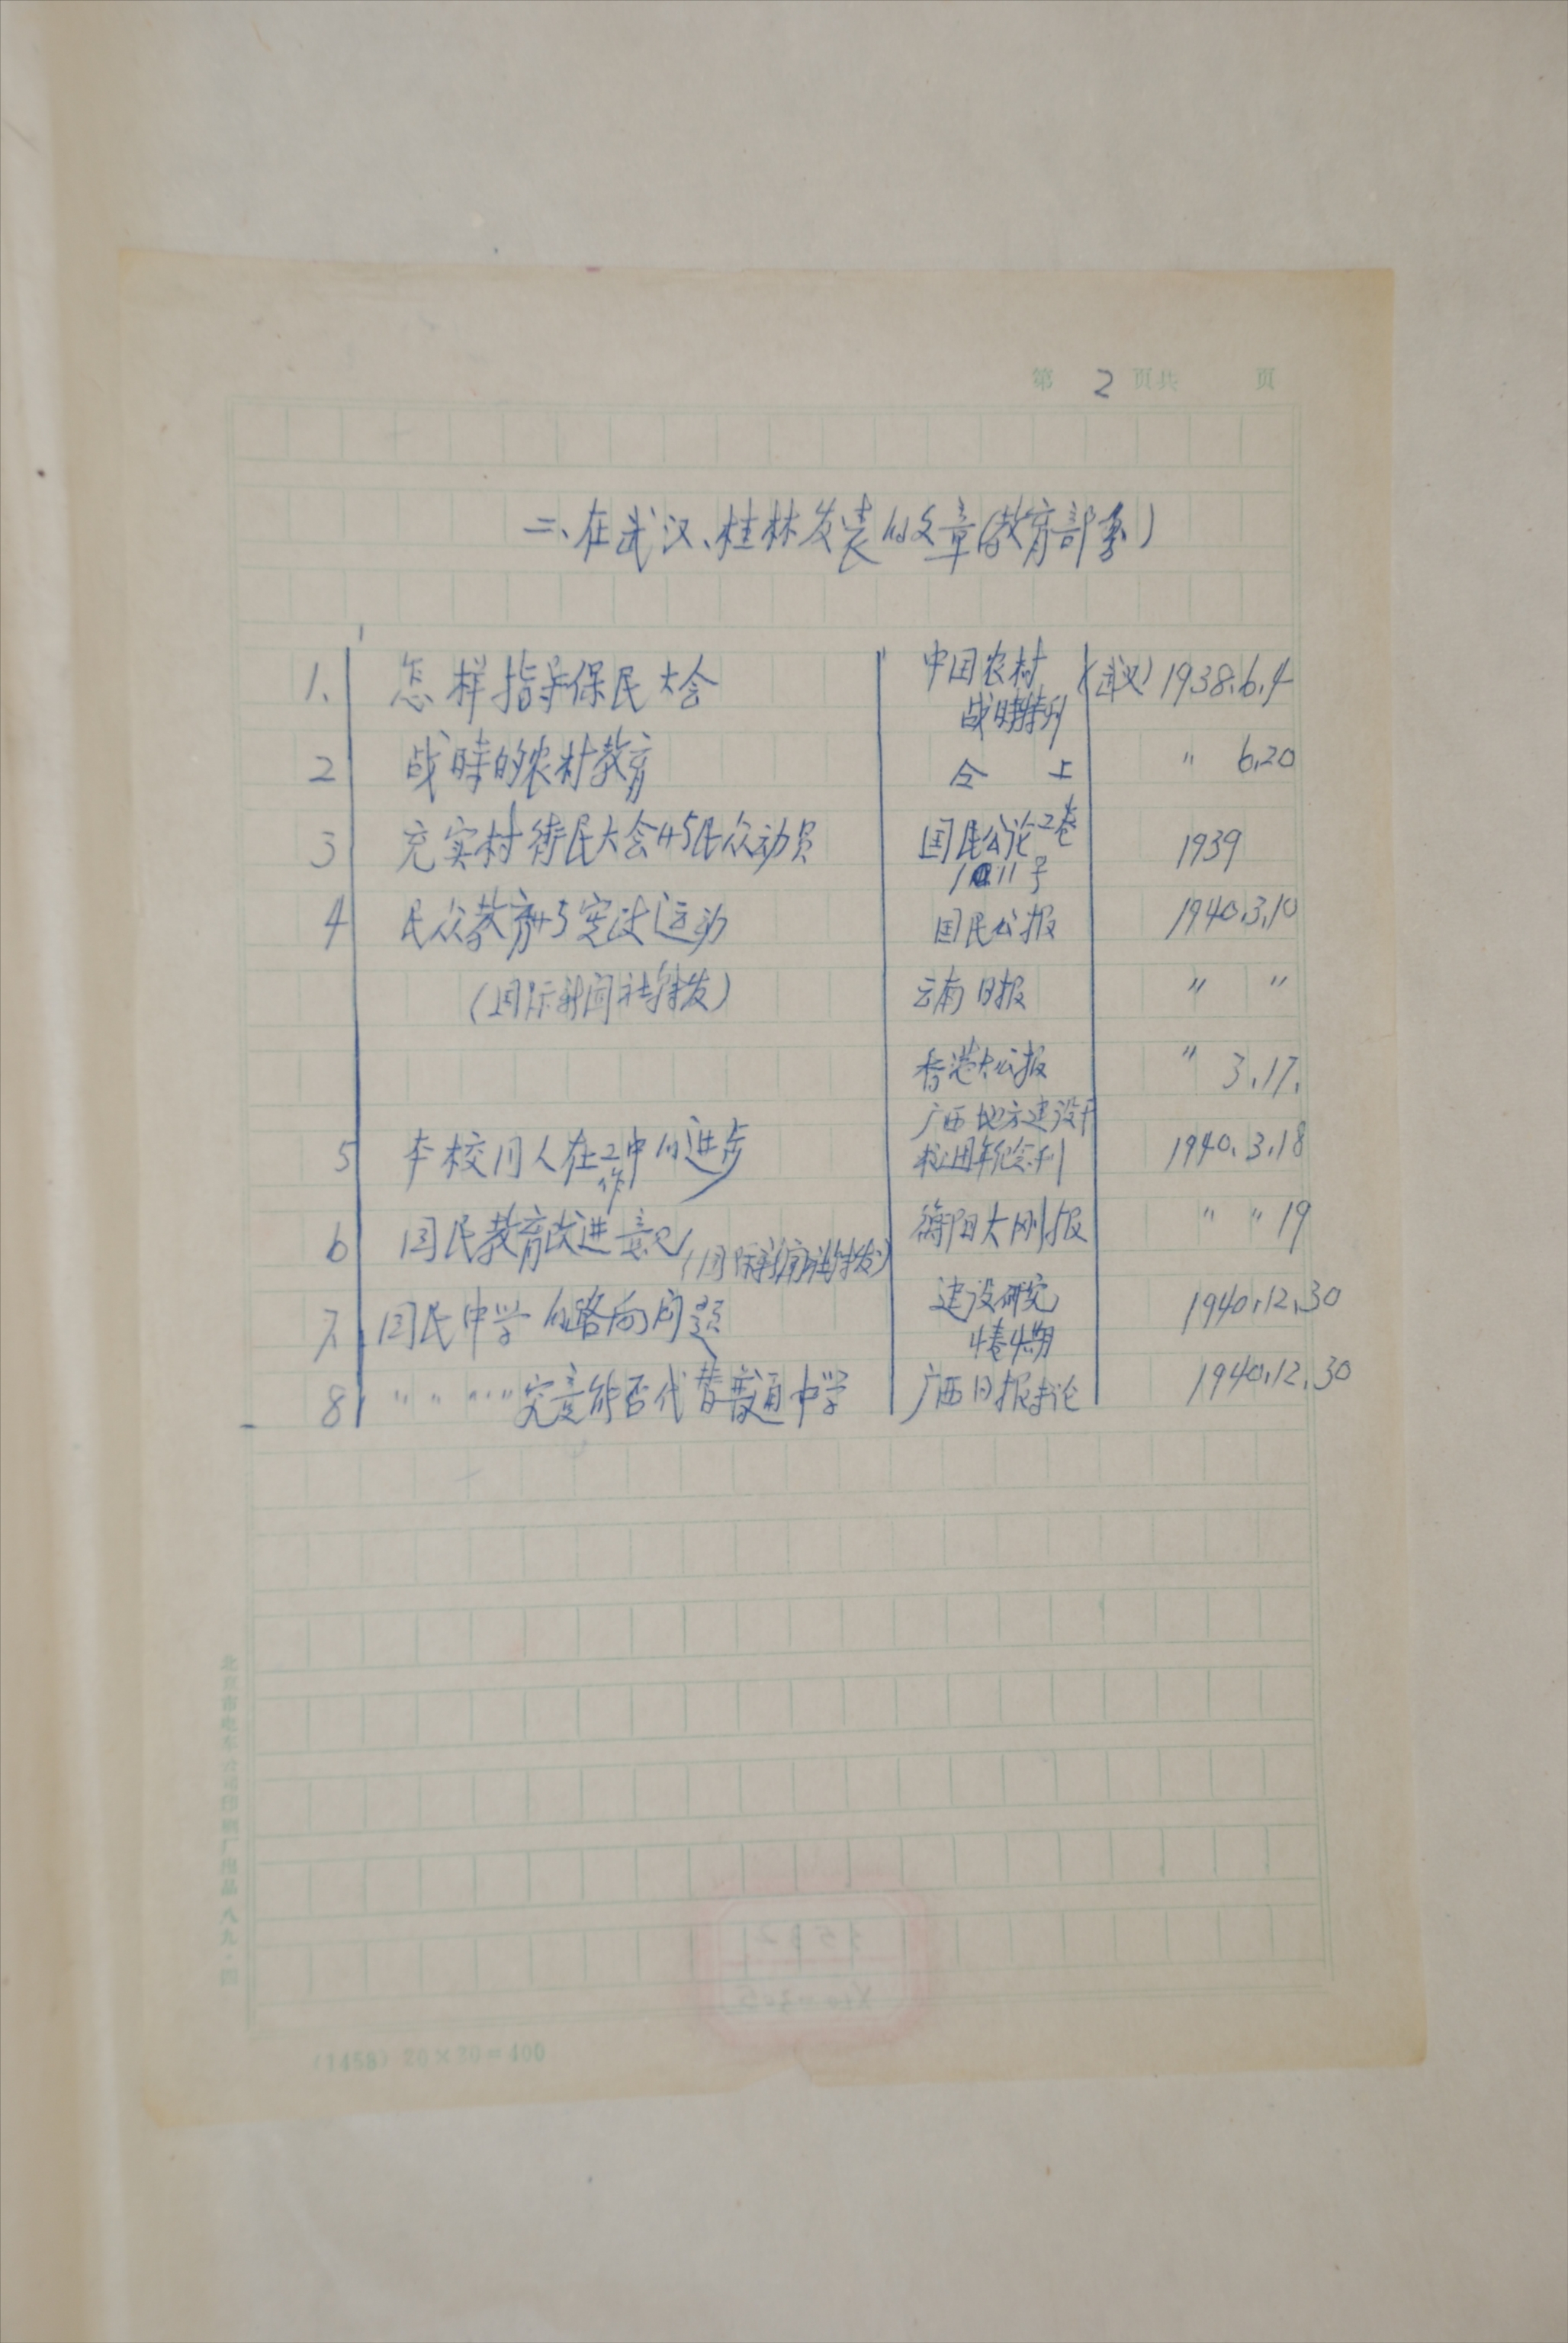 第 2 页共 页
二、在武汉、桂林发表的文章(教育部分)
1. 怎样指导保民大会 中国农村 (武汉) 1938.6.4
战时特刊
2 战时的农村教育 仝 上 〃 6.20
3 充实村街民大会与民众动员 国民公论2卷 1939
10.11号
4 民众教育与宪政运动 国民公报 1940.3.10
(国际新闻社特发) 云南日报 〃 〃
香港大公报 〃 3.17.
广西地方建设干
5 本校同人在工作中的进步 校周年纪念刊 1940.3.18
6 国民教育改进意见(国际新闻社特发) 衡阳大刚报 〃 〃 19
7. 国民中学的路向问题 建设研究 1940.12.30
4卷4期
8. 〃 〃 〃 〃 究竟能否代替普通中学 广西日报专论 1940.12.30
北京市电车公司印刷厂出品 八九·四
(1458) 20×20=400